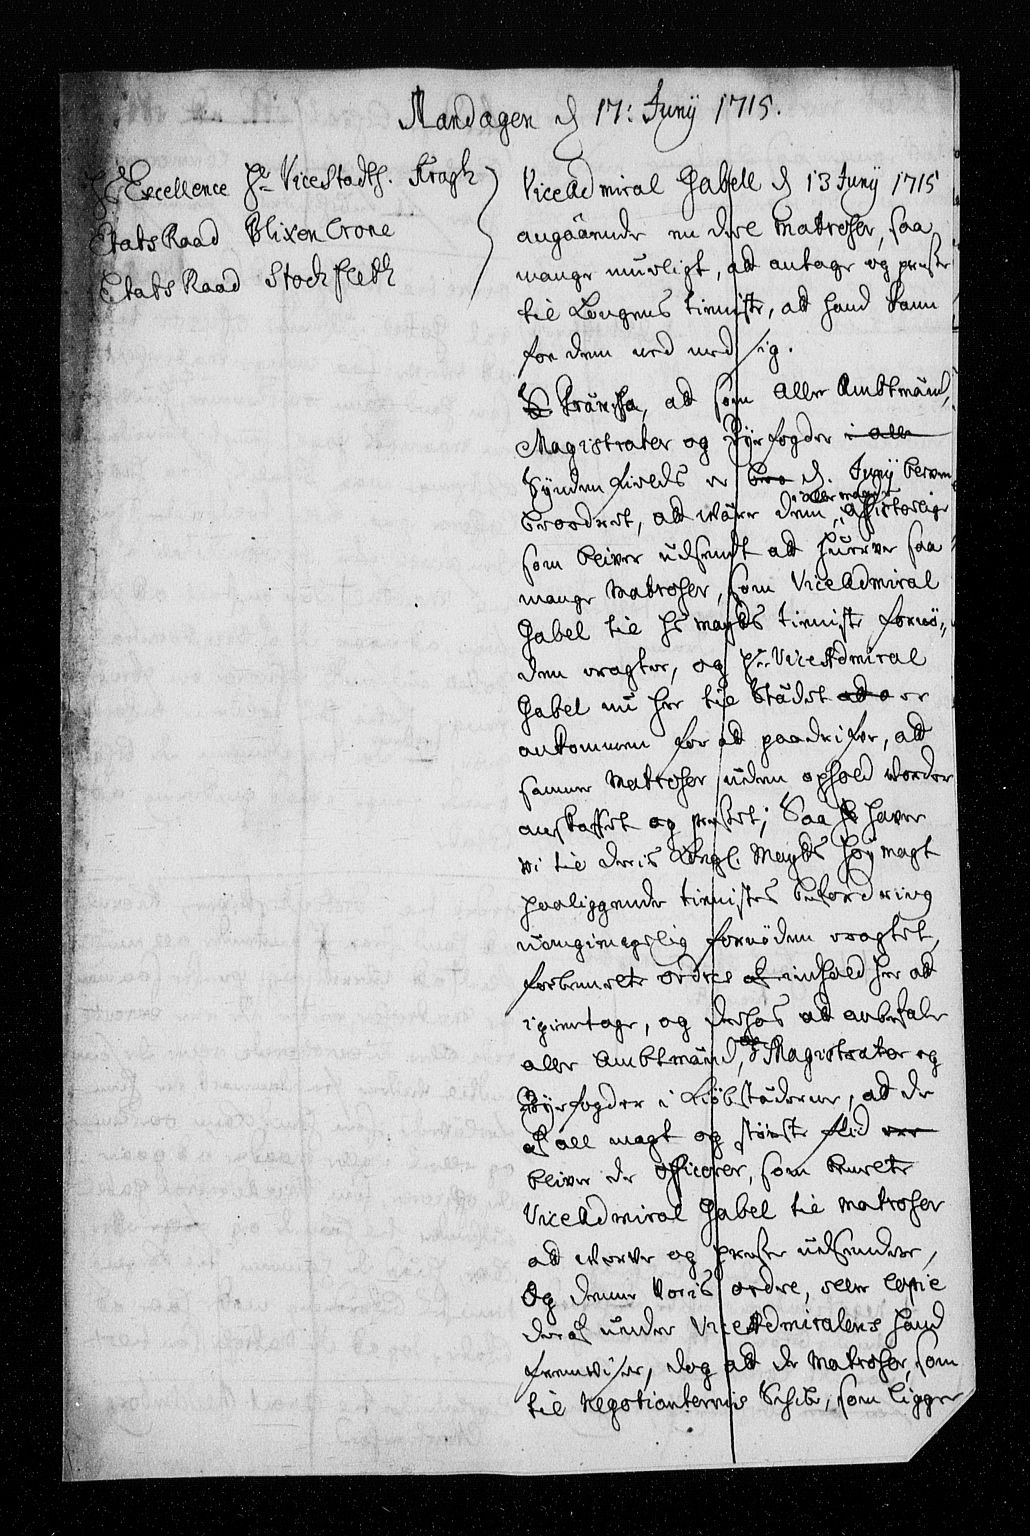 Mandagen d 17: Junÿ 1715.
Hs Excellence Hr ViceStadth. Kragh
EtatsRaad Blixencrone
EtatsRaad Stockfleth
ViceAdmiral Gabell d 13 Junÿ 1715
angaaende en deel Matroser, saa
mange mueligt, att antage og presse
til Kongens tieniste, att hand kann
for dem ned med sig.
att som alle Ambtmænd,
Magistrater og Bÿefogder i alle
Sÿndenfields er d. Junÿ
beordret, att være dem, i aller maader assisterlige
som bliver udsendt att hverve saa
mange Matroser, som ViceAdmiral
Gabel til Hs Mayts tieniste fornö-
den eragter, og Hr ViceAdmiral
Gabel nu her til Stædet er
ankommen for att paadrifve, att
samme Matroser uden ophold vorder
anskaffet og presset; Saa haver
vi til deris Kongl. Mayts höy magt
paaliggende tienistes befordring
uomgiengelig fornöden eragtet,
forbemelte ordres indhold her att
igientage, og derhos att anbefale
alle Ambtmænd, Magistrater og
Bÿefogder i Kiöbstæderne, att de
af all magt og störste flid
bliver de officerer, som bemelte
ViceAdmiral Gabel til Matroser
att verve og presse udsender,
Og denne Voris ordre, eller Copie
deraf under ViceAdmiralens haand
fremviser, dog att de Matroser, som
til Negotianternis Schibe, som ligger